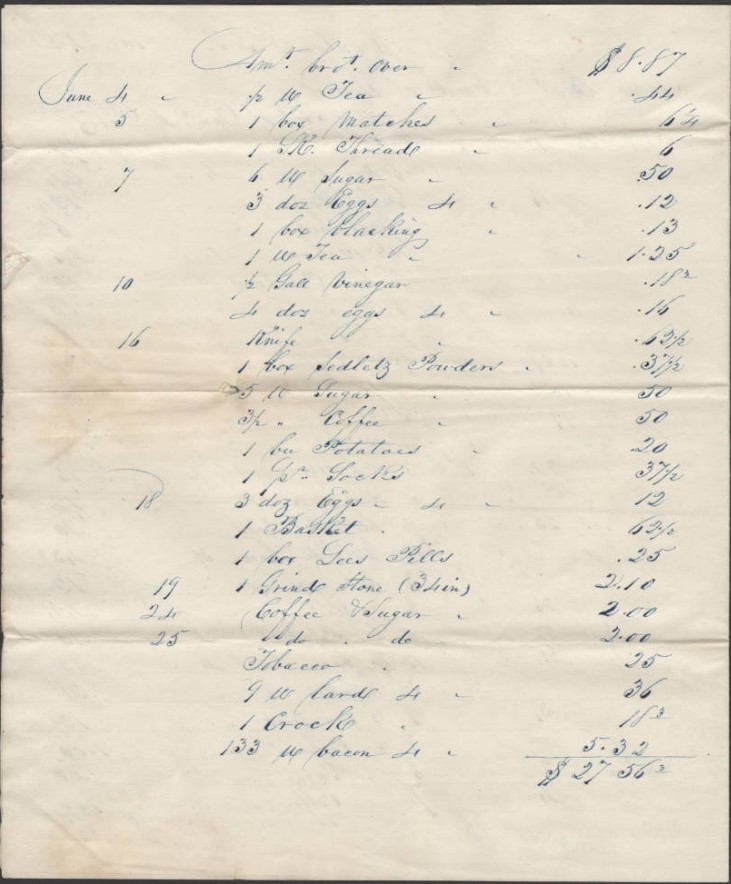 Amt. brot. over " $8.87
June 4 " ½ lb Tea " .44
5 1 box Matches " 6¼
1 SK. Thread " 6
7 6 lb Sugar " .50
3 doz Eggs 4 " .12
1 box blacking " .13
1 lb Tea " " 1.25
10 ½ Gall Vinegar .18³
4 doz eggs 4 " .16
16 Knife " .62½
1 box Sedletz Powders " .37½
5 lb Sugar " 50
3½ " Coffee " 50
1 bu Potatoes " .20
1 pr. Socks 37½
18 3 doz Eggs " 4 " 12
1 Basket . 62½
1 box Lees Pills .25
19 1 Grind Stone (34in) 2.10
24 Coffee & Sugar " 2.00
25 " do . do 2.00
Tobacco . 25
9 lb lard 4 " 36
1 Crock . 18³
133 lb bacon 4 " 5.32
$ 27 56²